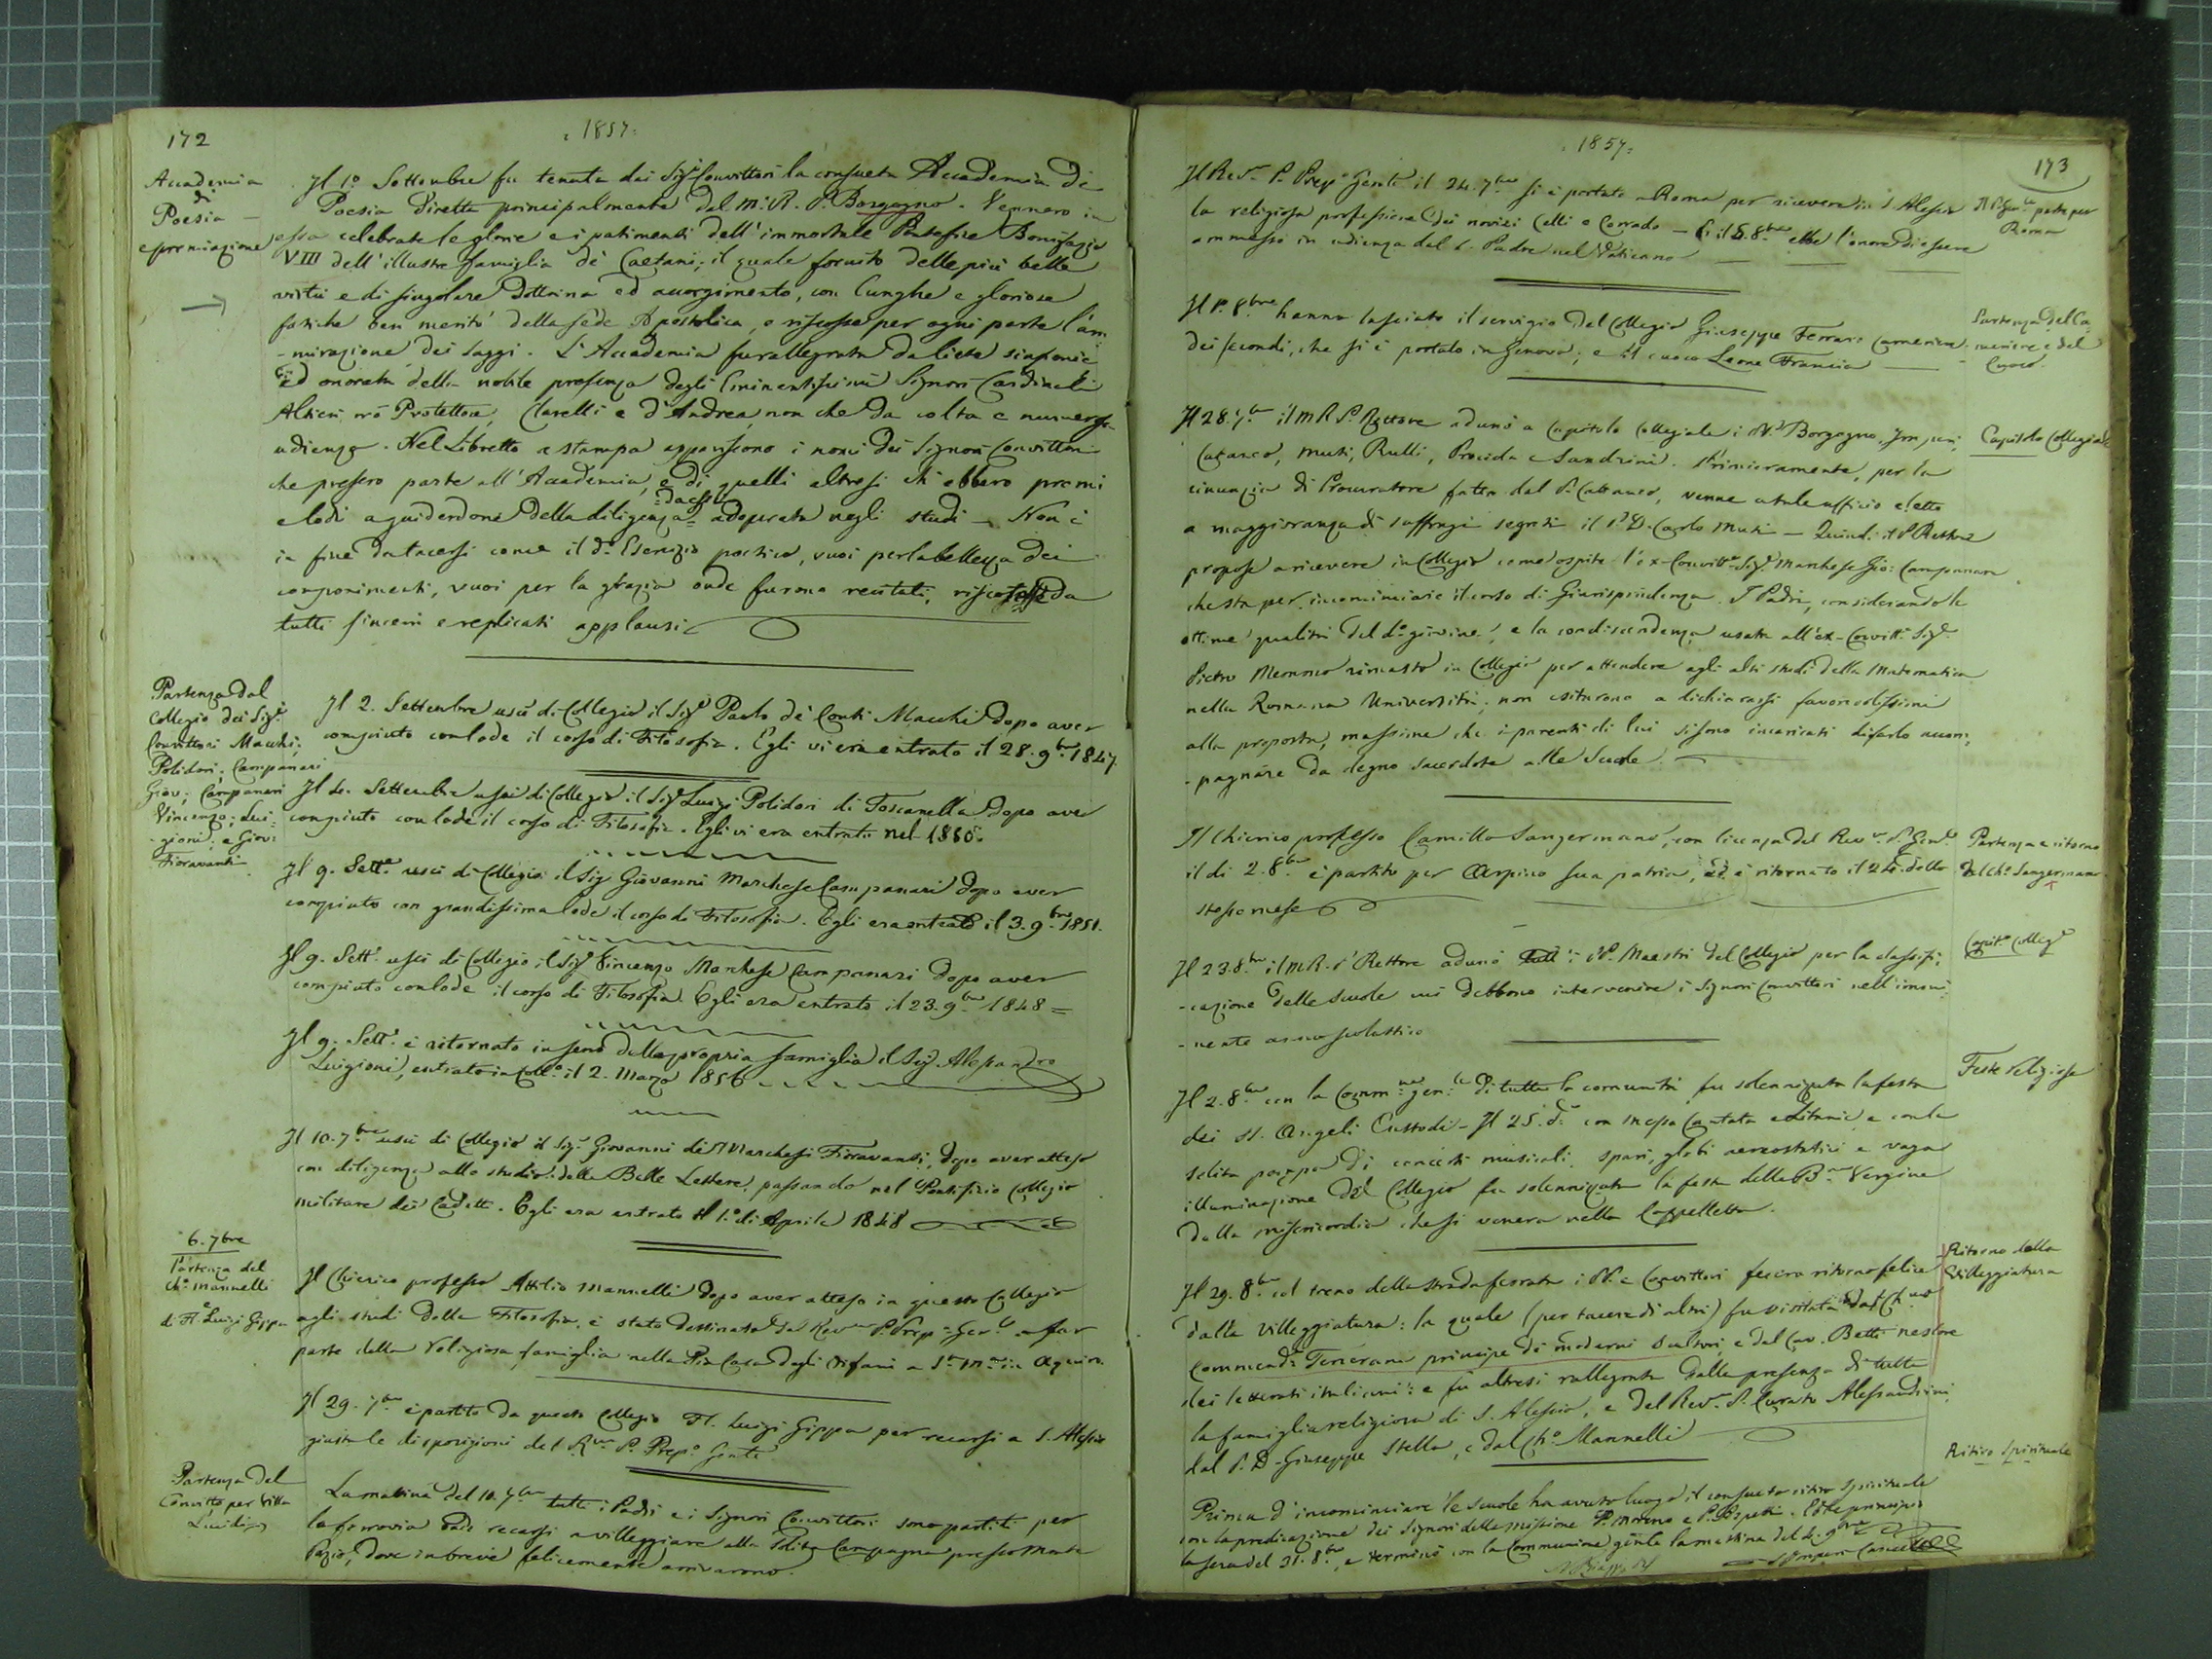 172
1857
Accademia
di
Poesia
e premiazione
Il 1º Settembre fu tenuta dai Sigri Convittori la consueta Accademia di
Poesia diretta principalmente dal M. R. P. Borgogno. Vennero in
essa celebrate le glorie e i patimenti dell'immortale Pontefice Bonifazio
VIII dell'illustre famiglia de' Caetani; il quale fornito delle più belle
virtù e di singolare dottrina ed accorgimento, con lunghe e gloriose
fatiche ben meritò della sede Apostolica, e riscosse per ogni parte l'am-
-mirazione dei saggi. L'Accademia fu rallegrata da liete sinfonie
ed onorata della nobile presenza degli Eminentissimi Signori Cardinali
Altieri nrõ Protettore, Clarelli e d'Andrea, non che da colta e numerosa
udienza. Nel Libretto a stampa appariscono i nomi dei Signori Convittori
che presero parte all'Accademia, e di quelli altresì ch'ebbero premi
e lodi a guiderdone della diligenza da essi adoperata negli studi — Non è
in fine da tacersi come il dº Esercizio poetico, vuoi per la bellezza dei
componimenti, vuoi per la grazia onde furono recitati, riscosse da
tutti sinceri e replicati applausi
Partenza dal
Collegio dei Sigri
Convittori Macchi;
Polidori; Campanari
Giov; Campanari
Vincenzo; Luci-
-gioni; e Giov:
Fioravanti
Il 2. Settembre uscì di Collegio il Sigr Paolo de' Conti Macchi dopo aver
compiuto con lode il corso di Filosofia. Egli vi era entrato il 28. 9bre 1847.
Il 4. Settembre uscì di Collegio il Sigr Luigi Polidori di Toscanella dopo aver
compiuto con lode il corso di Filosofia. Egli vi era entrato nel 1850.
Il 9. Sette uscì di Collegio il Sig Giovanni Marchese Campanari dopo aver
compiuto con grandissima lode il corso di Filosofia. Egli era entrato il 3. 9bre 1851.
Il 9. Sett. uscì di Collegio il Sigr Vincenzo Marchese Campanari dopo aver
compiuto con lode il corso di Filosofia. Egli era entrato il 23. 9bre 1848 =
Il 9. Sett. è ritornato in seno della propria famiglia il Sigr Alessandro
Luigioni, entrato in Collº il 2. Marzo 1856
Il 10. 7bre uscì di Collegio il Sigr Giovanni de' Marchesi Fioravanti, dopo aver atteso
con diligenza allo studio delle Belle Lettere, passando nel Pontificio Collegio
militare dei Cadetti. Egli era entrato il 1º di Aprile 1848
6. 7bre
Partenza del
Chº Mannelli
di Fr. Luigi Gippa
Il Chierico professo Attilio Mannelli dopo aver atteso in questo Collegio
agli studi della Filosofia, è stato destinato dal Revmo P. Prepº Genle a far
parte della religiosa famiglia nella Pia Casa degli Orfani a Sta Mª in Aquiro.
Il 29. 7bre è partito da questo Collegio Fr. Luigi Gippa per recarsi a S. Alessio
giusta le disposizioni del Rmo P. Prepº Genle
Partenza del
Convitto per Villa
Lucidi
La mattina del 10. 7bre tutti i Padri e i Signori Convittori sono partiti per
la ferrovia onde recarsi a villeggiare alla solita Campagna presso Monte
Pozio, dove in breve felicemente arrivarono.
1857
173
Il Revmo P. Prepº Genle il 24. 7bre si è portato a Roma per ricevere in S. Alessio
la religiosa professione dei novizi Celli e Corrado — E il 5. 8bre ebbe l'onore di essere
ammesso in udienza dal S. Padre nel Vaticano
Il P. Genle parte per
Roma
Il 1º. 8bre hanno lasciato il servigio del Collegio Giuseppe Ferrari Cameriere
dei secondi, che si è portato in Genova; e il cuoco Leone Francia
Partenza del Ca-
meriere e del
Cuoco.
Il 28. 7bre il M R P. Rettore adunò a Capitolo Collegiale i PP. Borgogno,
Cattaneo, Muti, Rulli, Procida e Sandrini. Primieramente, per la
rinunzia di Procuratore fatta dal P. Cattaneo, venne a tale ufficio eletto
a maggioranza di suffragi segreti il P. D. Carlo Muti — Quindi il P. Rettore
propose a ricevere in Collegio come ospite l'ex-Convittre Sigr Marchese Gio: Campanari
che sta per incominciare il corso di Giurisprudenza. I Padri, considerando le
ottime qualità del dº giovine, e la condiscendenza usata all'ex-Convitt. Sigr
Pietro Memmo rimasto in Collegio per attendere agli alti studi della Matematica
nella Romana Università; non esitarono a dichiararsi favorevolissimi
alla proposta, massime che i parenti di lui si sono incaricati di farlo accom-
-pagnare da degno sacerdote alle scuole.
Capitolo Collegiale
Il Chierico professo Camillo Sangermano, con licenza del Revmo P. Genle
il dì 2. 8bre è partito per Arpino sua patria, ed è ritornato il 24. dello
stesso mese
Partenza e ritorno
del Chº Sangermano
Il 23. 8bre il M R. P. Rettore adunò tutti i PP. Maestri del Collegio per la classifi-
-cazione delle scuole cui debbono intervenire i Signori Convittori nell'immi-
-nente anno scolastico
Capitº College
Il 2. 8bre con la Commne genle di tutta la comunità fu solennizzata la festa
dei SS. Angeli Custodi - Il 25. dº con messa cantata e Litanie, e con la
solita pompa di concerti musicali, spari, globi aereostatici e vaga
illuminazione del Collegio fu solennizzata la festa della Bma Vergine
della misericordia che si venera nella Cappelletta.
Feste religiose
Il 29. 8bre col treno della strada ferrata i PP. e Convittori fecero ritorno felice
dalla villeggiatura: la quale (per tacere di altri) fu visitata dal Chmo
Commendr Tenerani principe di moderni scultori, e dal Cav. Betti nestore
dei letterati italiani: e fu altresì rallegrata dalla presenza di tutta
la famiglia religiosa di S. Alessio, e del Rev. P. Curato Alessandrini,
dal P. D. Giuseppe Stella, e dal Chº Mannelli
Ritorno dalla
Villeggiatura
Ritiro spirituale
Prima d'incominciare le scuole ha avuto luogo il consueto ritiro spirituale
con la predicazione dei Signori della missione P. Moreno e P. Ebbe principio
la sera del 31. 8bre, e terminò con la Communione genle la mattina del 4. 9bre